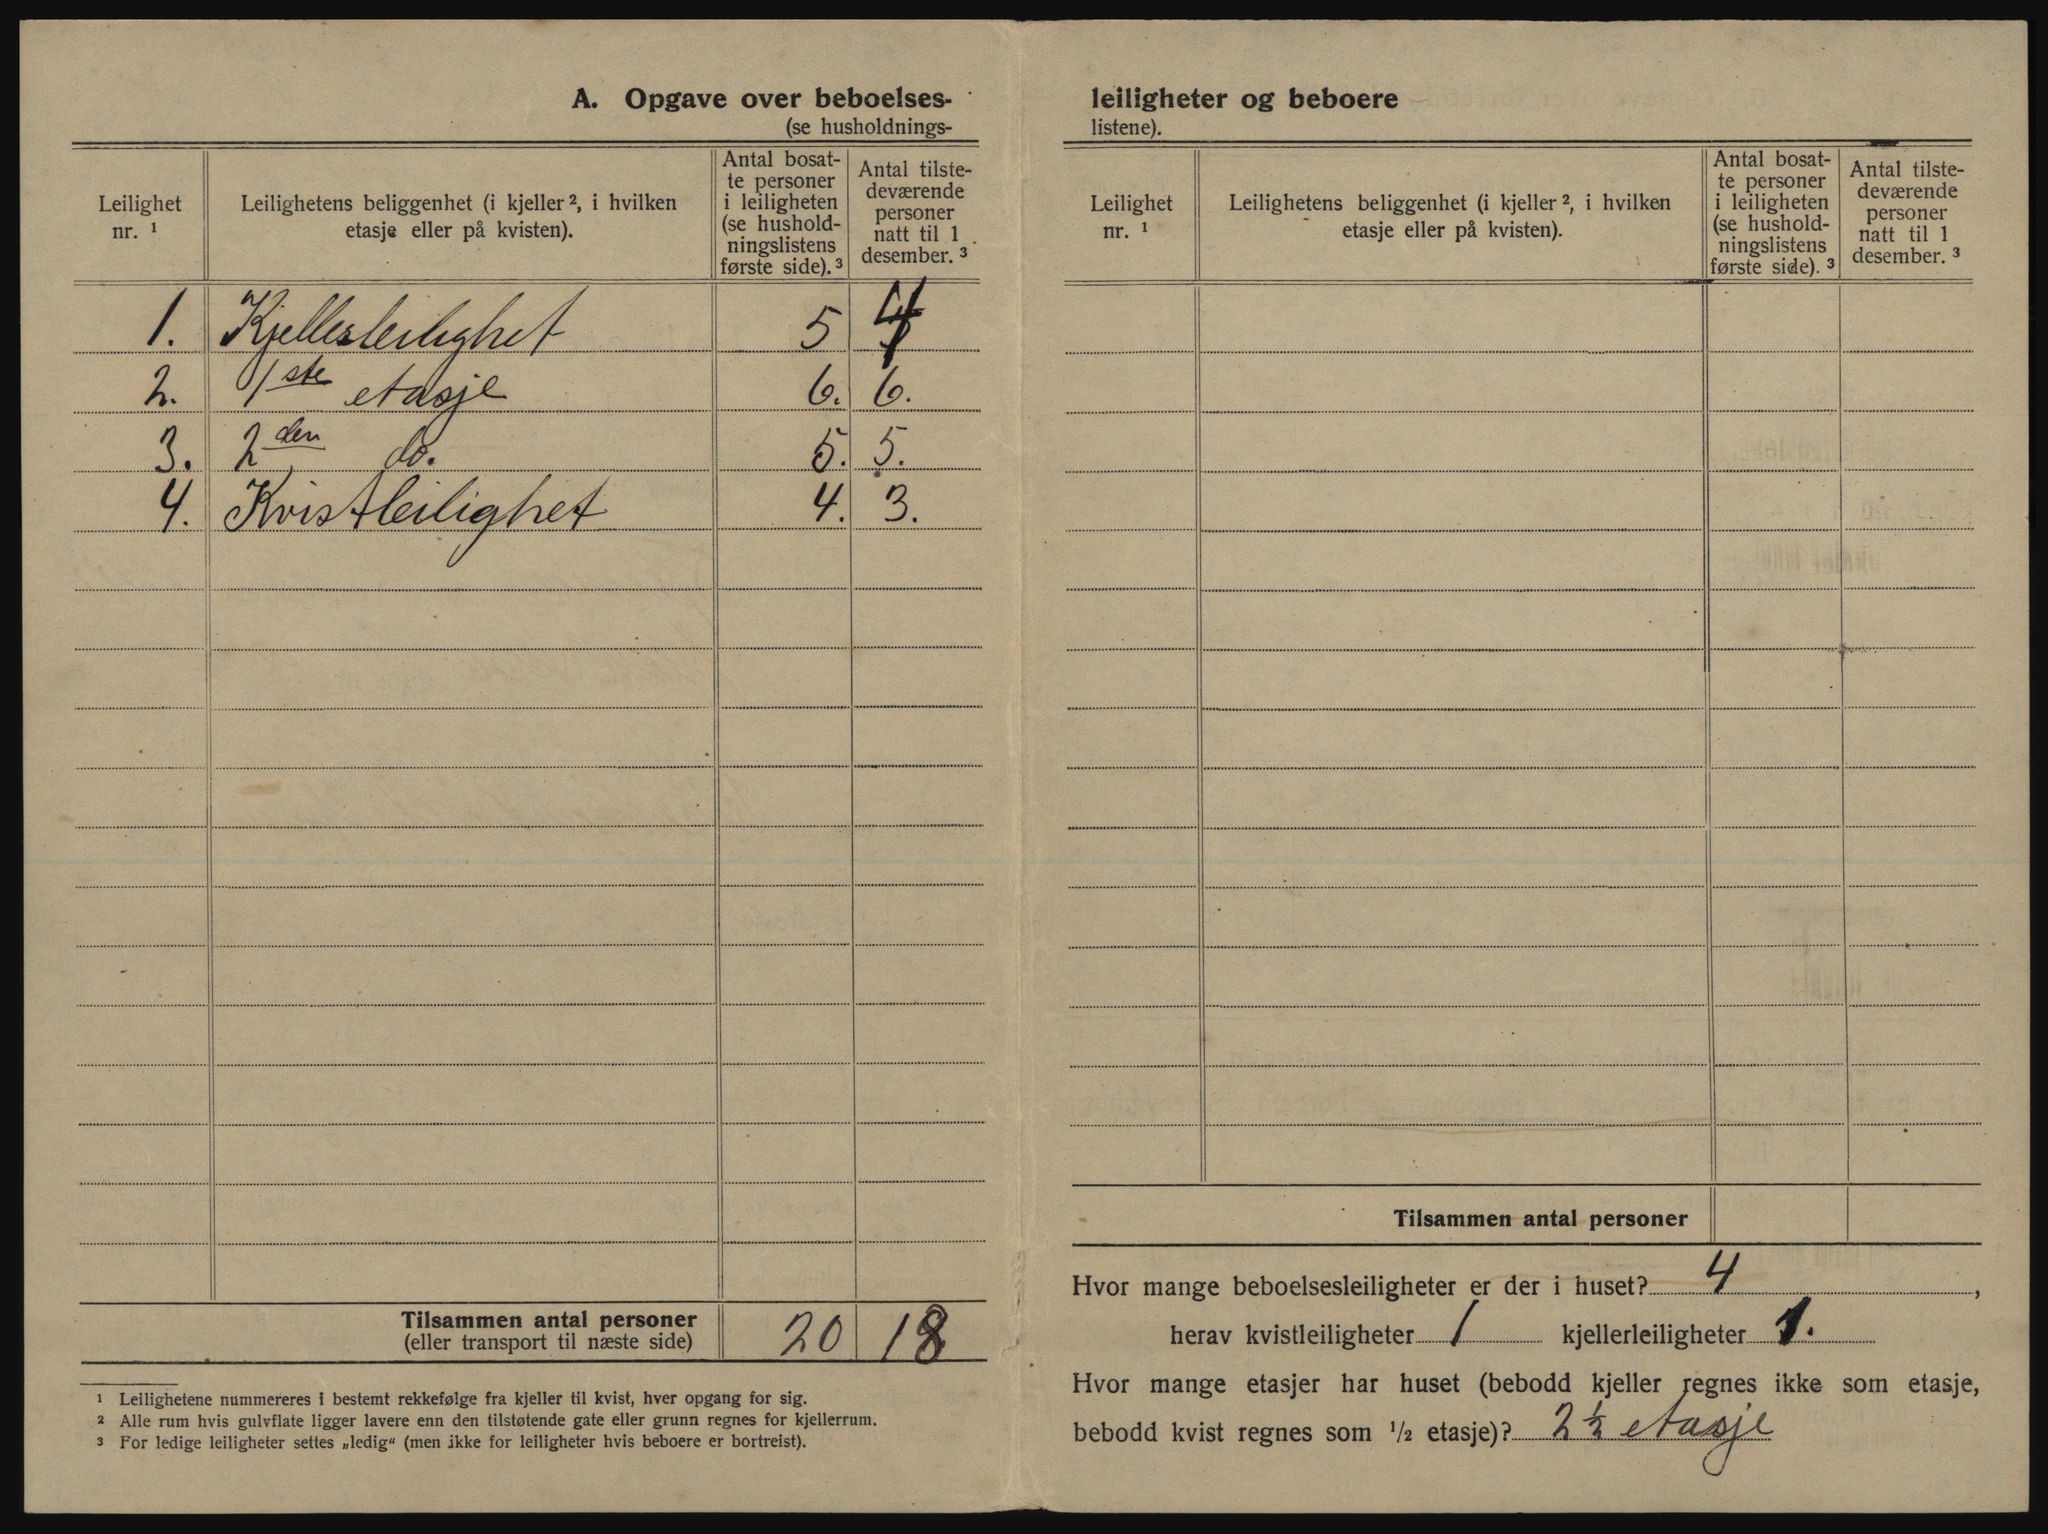 A. Opgave over beboelses-
(se husholdnings-
Leilighet nr. ¹
Leilighetens beliggenhet (i kjeller ², i hvilken etasje eller på kvisten).
Antal bosat-
te personer
i leiligheten
(se hushold-
ningslistens
første side). ³
Antal tilste-
deværende
personer
natt til 1
desember. ³
1. Kjellerleilighet 5 4
2. 1ste etasje 6. 6.
3. 2den do. 5. 5.
4. Kvistleilighet 4. 3.
Tilsammen antal personer 20 18
(eller transport til næste side)
¹ Leilighetene nummereres i bestemt rekkefølge fra kjeller til kvist, hver opgang for sig.
² Alle rum hvis gulvflate ligger lavere enn den tilstøtende gate eller grunn regnes for kjellerrum.
³ For ledige leiligheter settes „ledig“ (men ikke for leiligheter hvis beboere er bortreist).
leiligheter og beboere
listene).
Leilighet nr. ¹
Leilighetens beliggenhet (i kjeller ², i hvilken etasje eller på kvisten).
Antal bosat-
te personer
i leiligheten
(se hushold-
ningslistens
første side). ³
Antal tilste-
deværende
personer
natt til 1
desember. ³
Tilsammen antal personer
Hvor mange beboelsesleiligheter er der i huset? 4 ,
herav kvistleiligheter 1 kjellerleiligheter 1.
Hvor mange etasjer har huset (bebodd kjeller regnes ikke som etasje,
bebodd kvist regnes som ½ etasje)? 2 ½ etasje